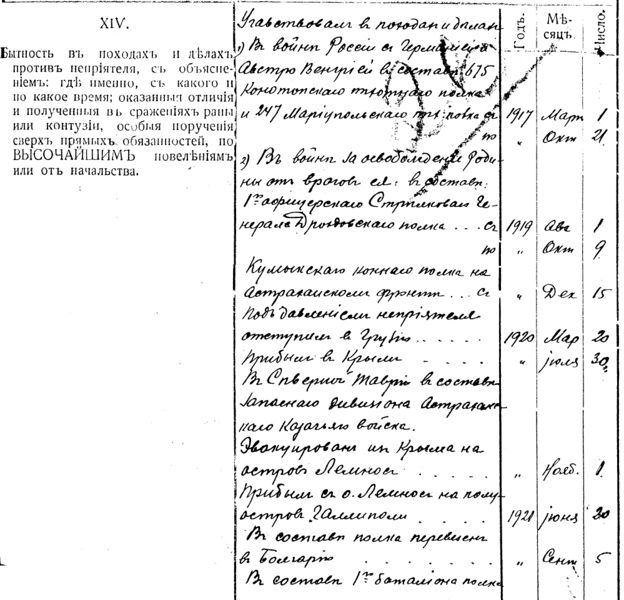 XIV.
Бытность въ походахъ и дѣлахъ
противъ непріятеля, съ объясне-
ніемъ: гдѣ именно, съ какого и
по какое время; оказанныя отличія
и полученныя въ сраженіяхъ раны
или контузіи, особыя порученія
сверхъ прямыхъ обязанностей, по
ВЫСОЧАЙШИМЪ повелѣніямъ
или отъ начальства.
Годъ. Мѣ-
сяцъ. Число.
Участвовалъ в походахъ и делахъ
1) Въ войнѣ Россіи съ Германіей и
Австро Венгріей въ составѣ 675
Конотопскаго пѣхотнаго полка
и 247 Маріупольскаго пѣх. полка съ 1917 Март 1
по " Окт 21
2) Въ войнѣ за освобожденіе Роди-
ны отъ враговъ ея: въ составѣ
1го офицерскаго Стрѣлковаго Ге-
нерала Дроздовскаго полка . . . съ 1919 Авг 1
по " Окт 9
Кумыкскаго коннаго полка на
Астраханскомъ фронтѣ . . . съ " Дек 15
Подъ давленіемъ непріятеля
отступилъ въ Грузію 1920 Мар 20
Прибылъ въ Крымъ . . . . . " іюля 30
Въ Сѣверной Тавріи въ составѣ
Запаснаго дивизіона Астрахан-
скаго Казачьяго войска.
Эвакуированъ изъ Крыма на
островъ Лемносъ . . . . . . " Нояб. 1
Прибылъ съ о. Лемносъ на полу-
островъ Галлиполи . . . . . 1921 іюня 30
Въ составѣ полка перевезенъ
въ Болгарію . . . . . . . " Сент 5
Въ составѣ 1го баталіона полка